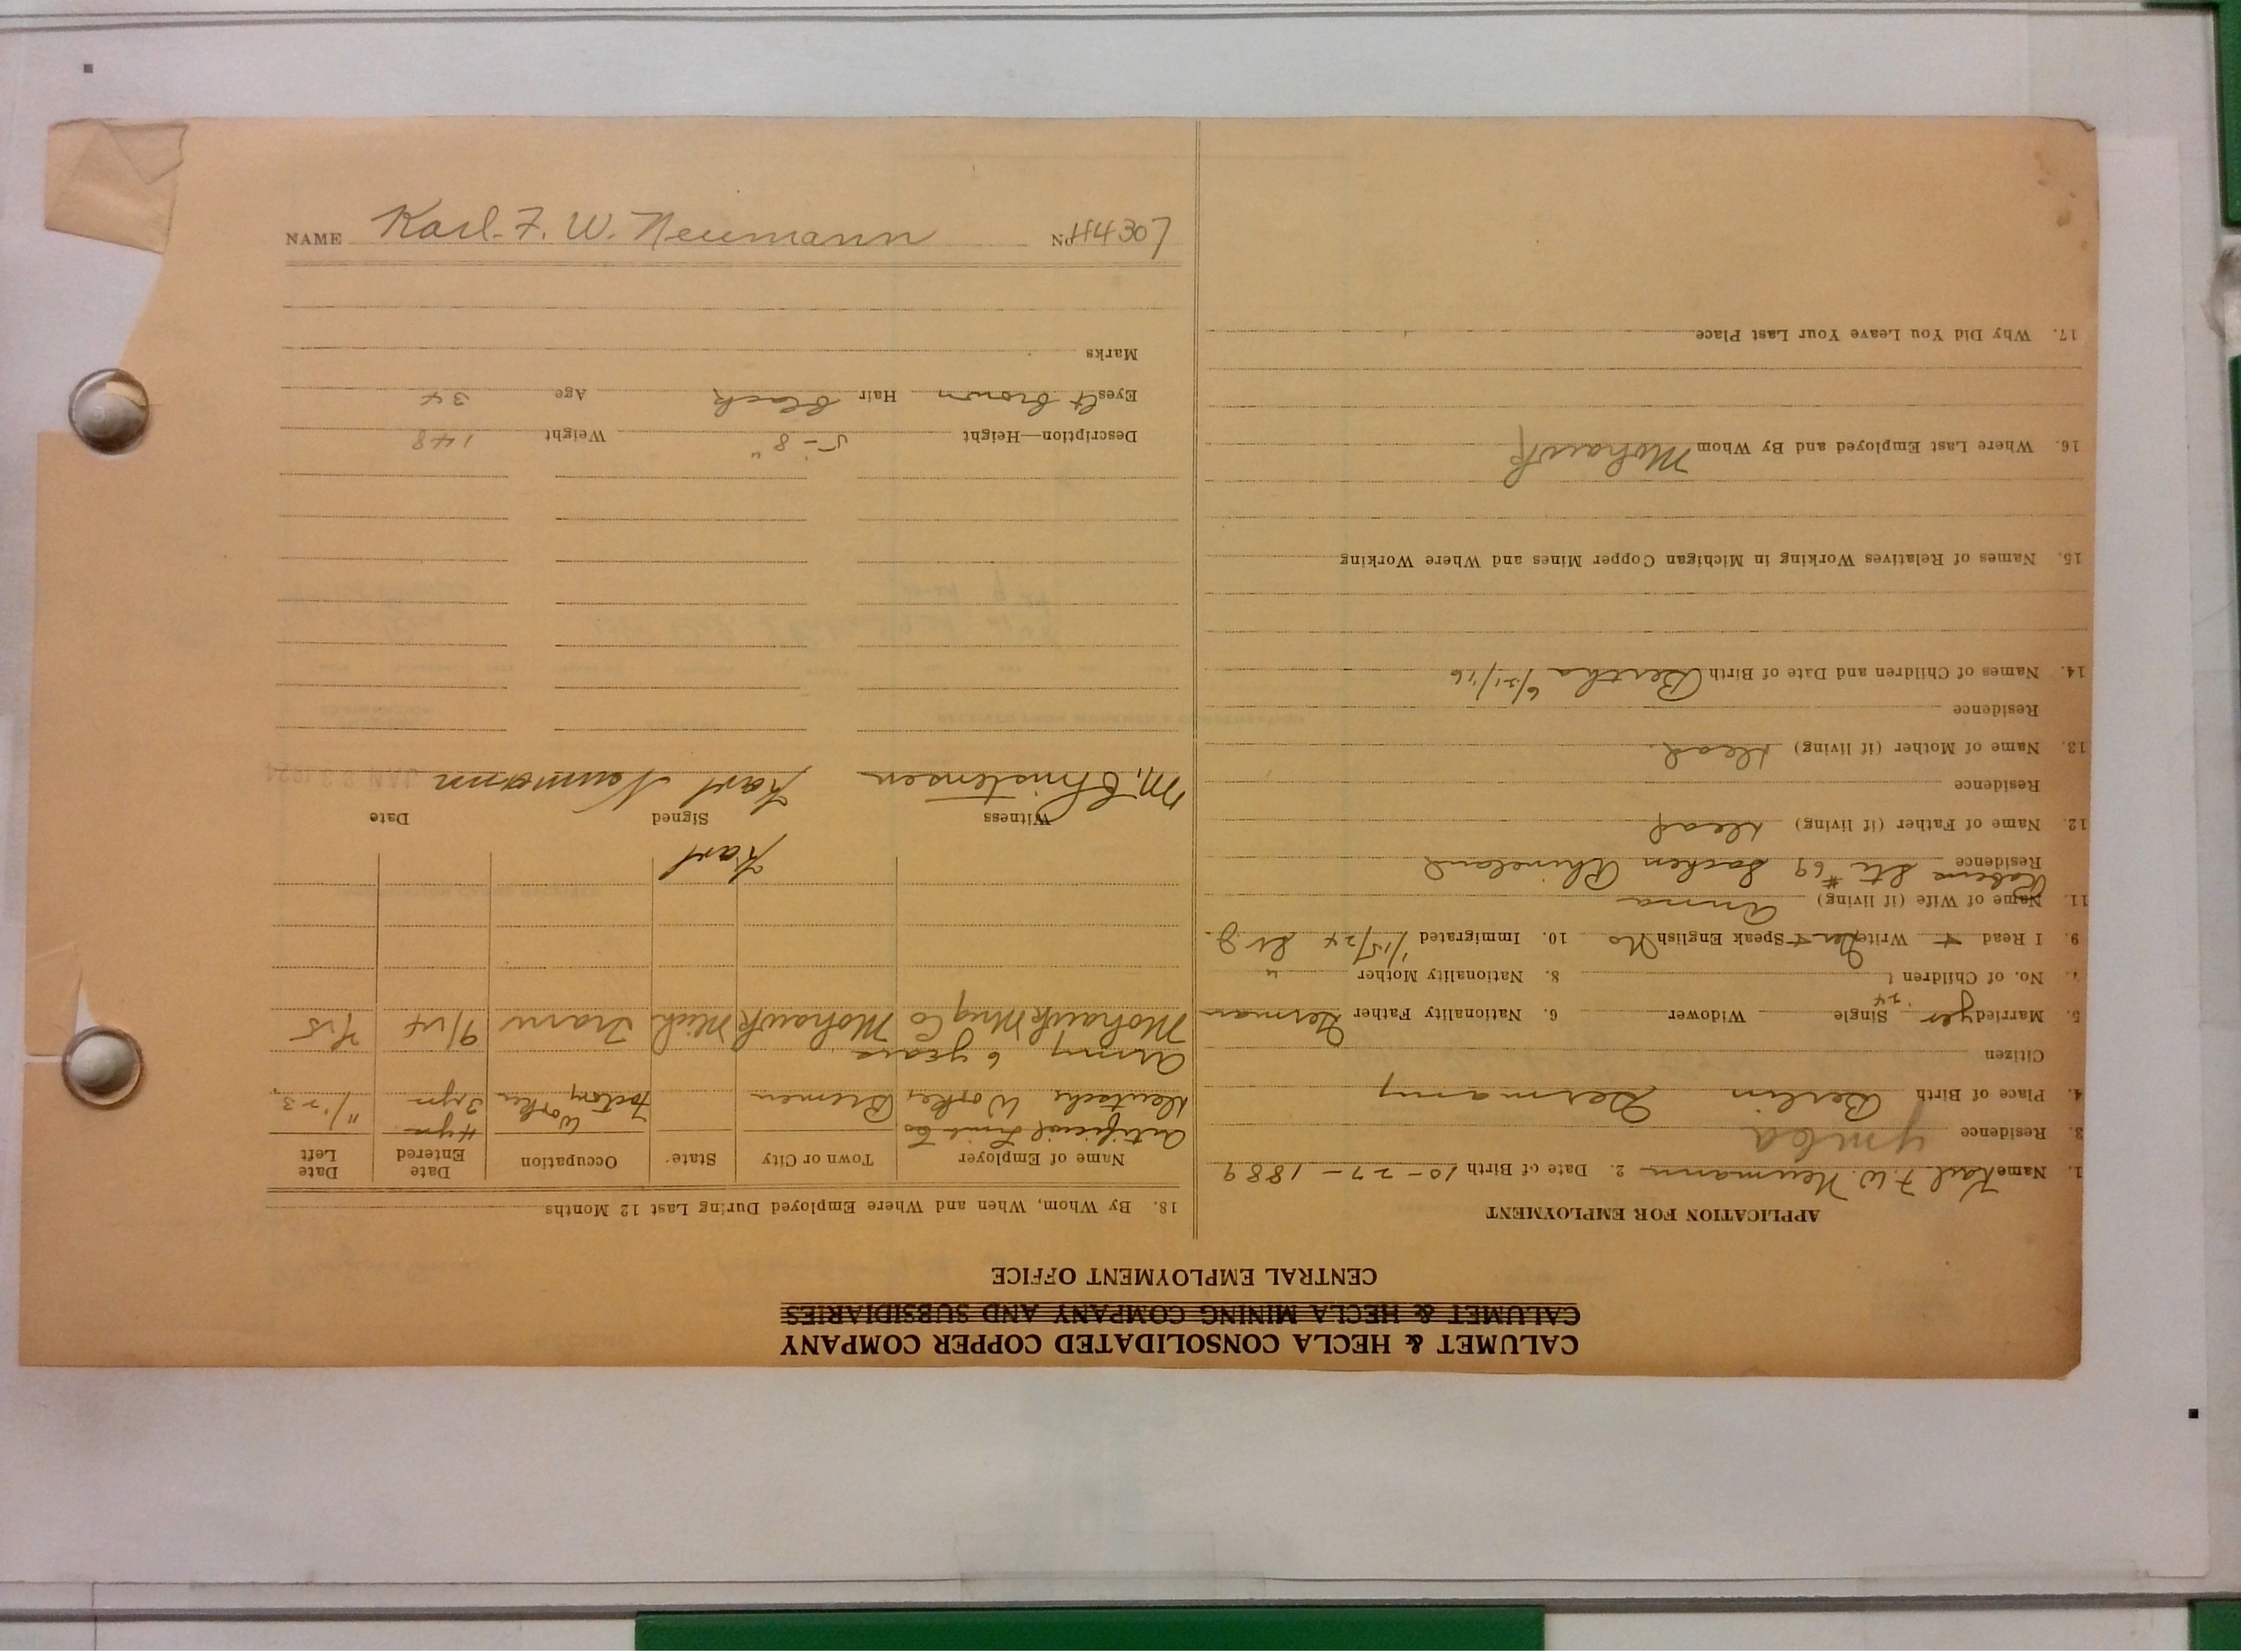 CALUMET & HECLA CONSOLIDATED COPPER COMPANY
CALUMET & HECLA MINING COMPANY AND SUBSIDIARIES
CENTRAL EMPLOYMENT OFFICE
APPLICATION FOR EMPLOYMENT
1. Name Karl F. W. Neumann 2. Date of Birth 10-27-1889
3. Residence Ymca
4. Place of Birth Berlin Germany
Citizen
5. Married yes 24 Single Widower 6. Nationality Father German
7. No. of Children 1 8. Nationality Mother "
9. I Read + Write Ger + Speak English No 10. Immigrated 1/15/24
11. Name of Wife (if living) Anna
Residence Str #69 Rhineland
12. Name of Father (if living) dead
Residence
13. Name of Mother (if living) dead
Residence
14. Names of Children and Date of Birth Bertha 6/21/16
15. Names of Relatives Working in Michigan Copper Mines and Where Working
16. Where Last Employed and By Whom Mohawk
17. Why Did You Leave Your Last Place
18. By Whom, When and Where Employed During Last 12 Months
Name of Employer Town or City State Occupation Date Entered Date Left
Artificial Limb Co 4 yrs
Deutsche Worke Bremen Factory Worker 3 yrs 11/23
Army 6 years
Mohawk Mng Co Mohawk Mich Tram 9/14 9/15
Karl
Witness Signed Date
M. Christensen Karl Neumann
Description—Height 5-8" Weight 148
Eyes Lt brown Hair black Age 34
Marks
NAME Karl. F. W. Neumann No. H4307